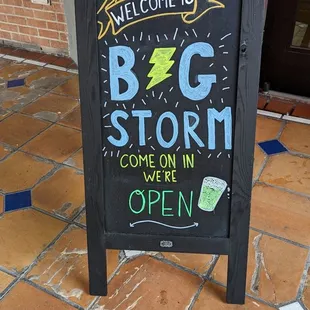 WELCOME TO
B⚡G
STORM
COME ON IN
WE'RE
OPEN